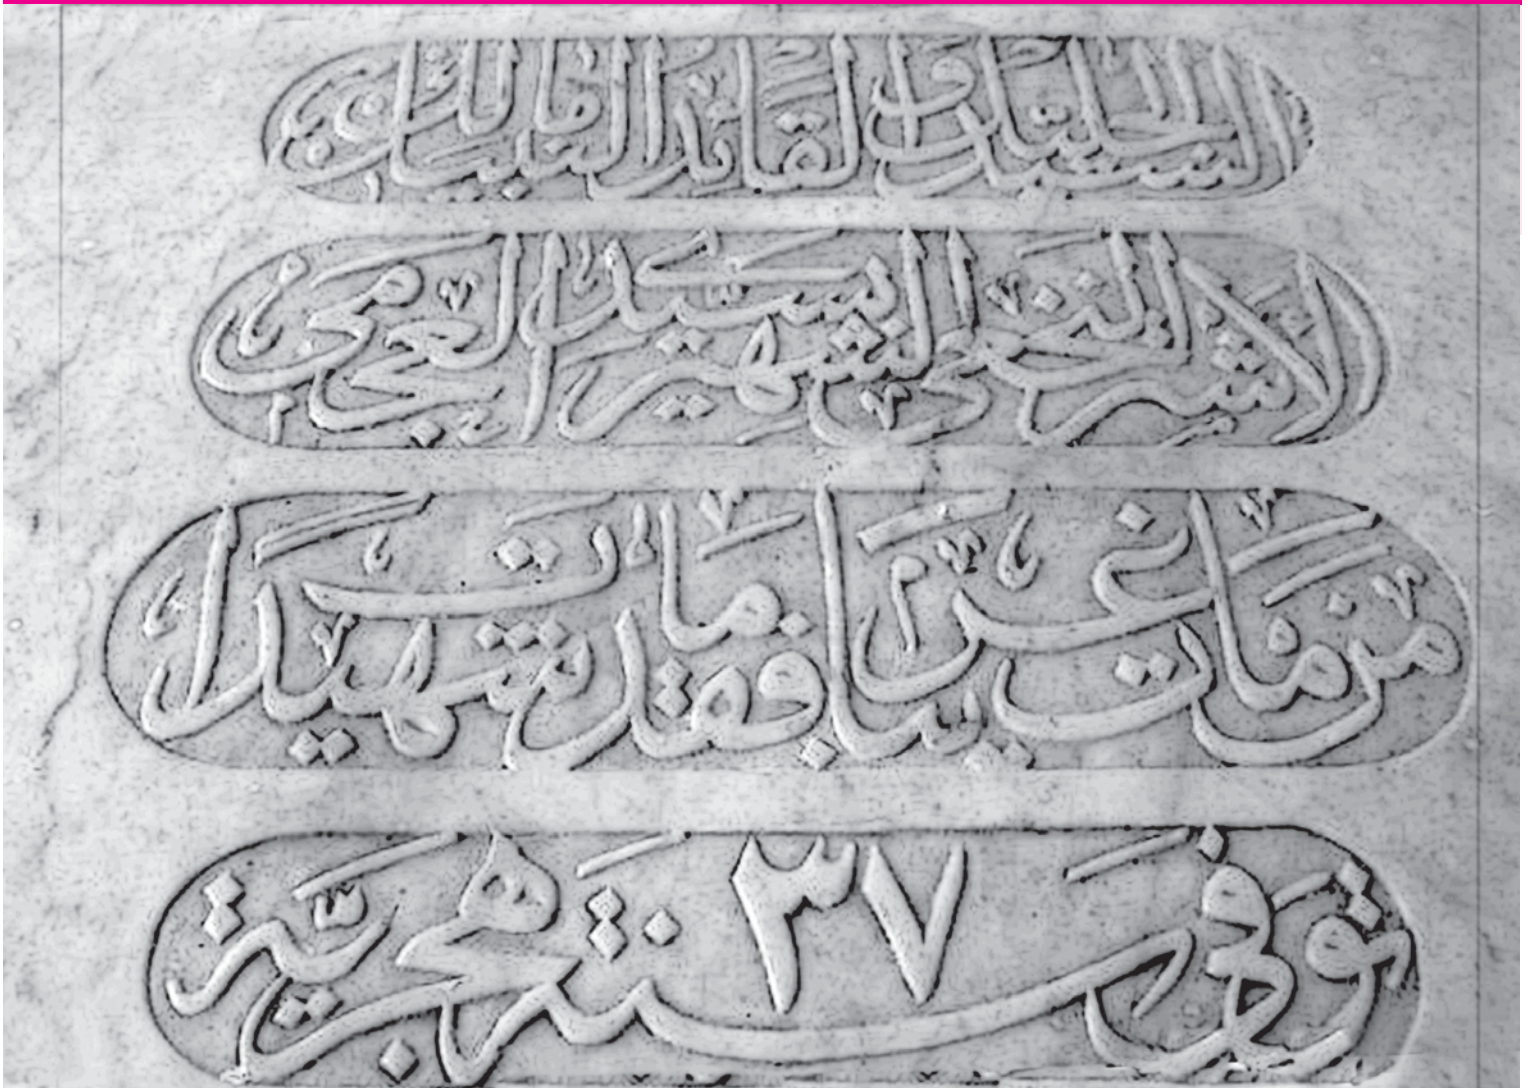 السيد الجليل والقائد النبيل مالك بن
الاشتر النخعي الشهير بسيدي العجمي
من مات غريبا فقد مات شهيدا
توفي في سنة ٣٧ هجرية